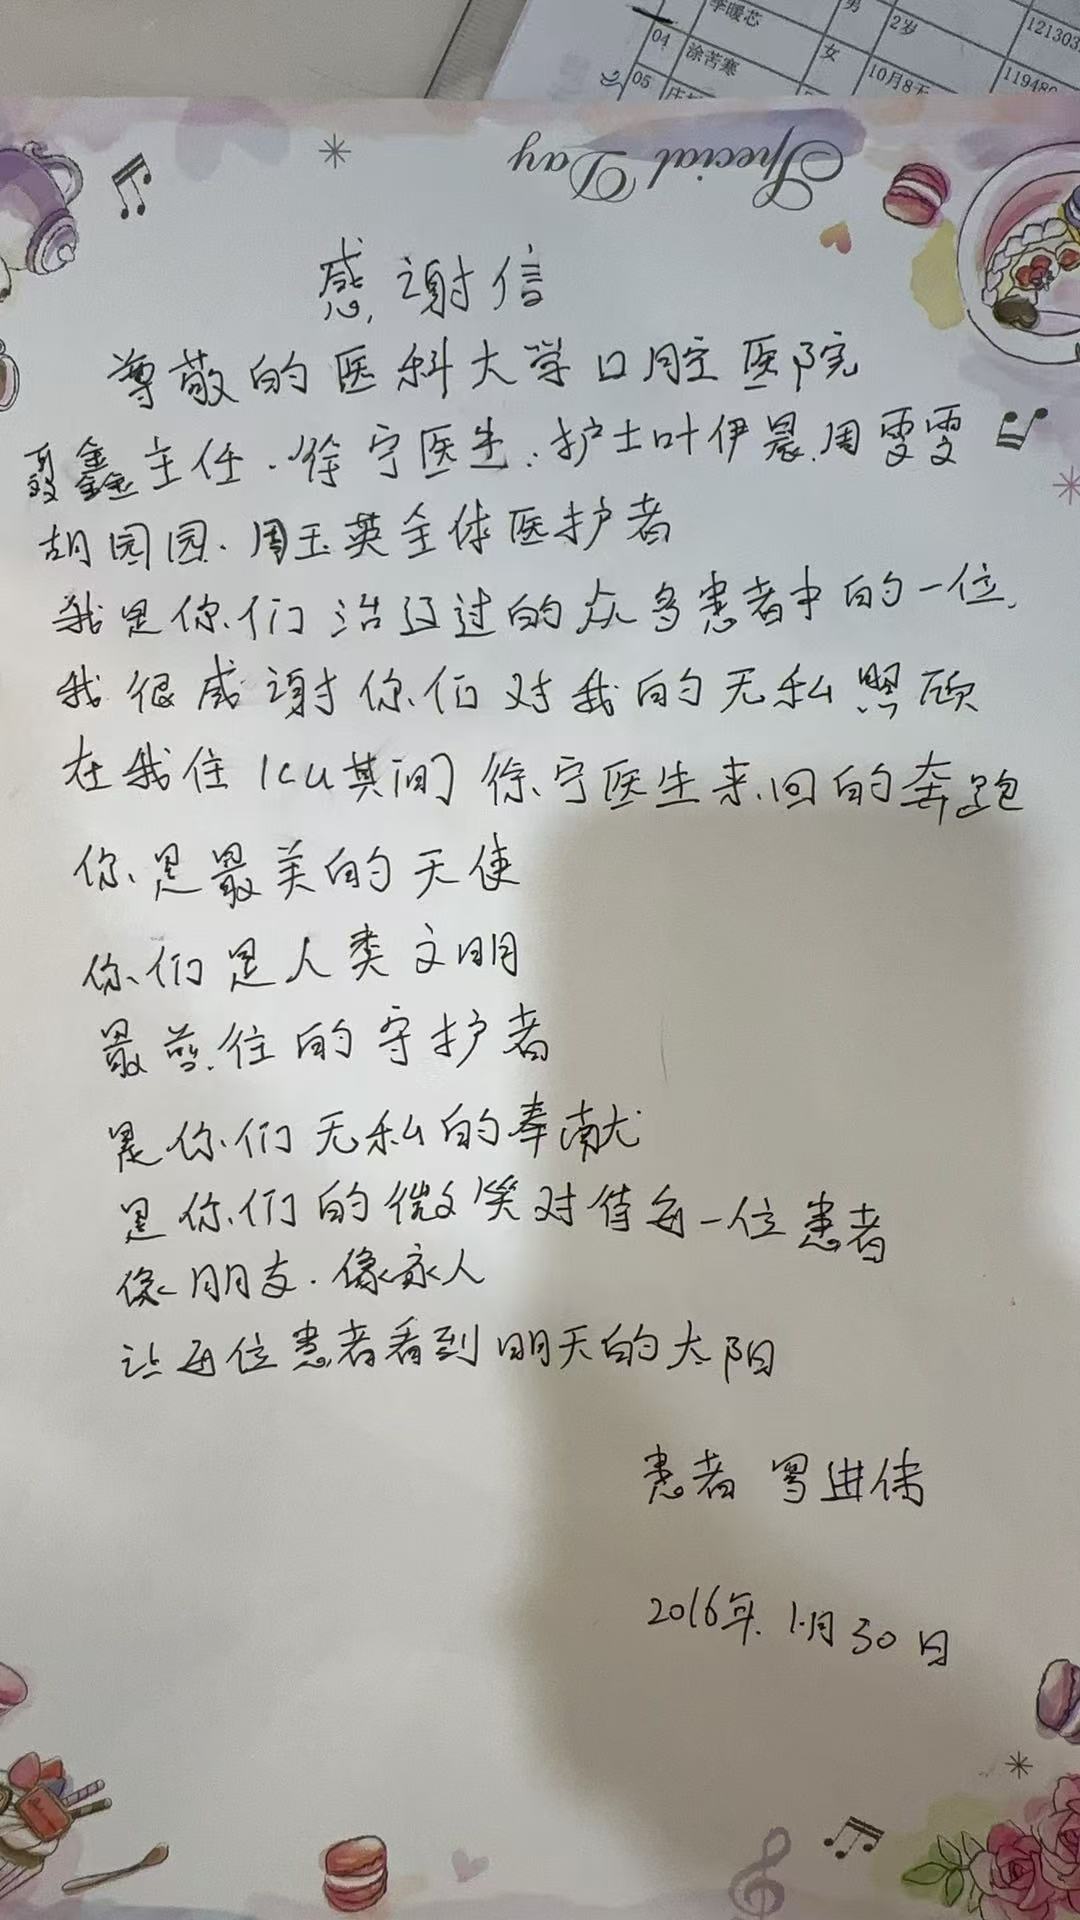 季暖芯 男 2岁 121303
04 涂苦寒 女 10月8天 119480
05
Special Day
感谢信
尊敬的医科大学口腔医院
聂鑫主任.徐宁医生.护士叶伊晨.周雯雯
胡园园.周玉英全体医护者
我是你们治辽过的众多患者中的一位,
我很感谢你们对我的无私照顾
在我住ICU其间徐宁医生来回的奔跑
你是最美的天使
你们是人类文明
最前往的守护者
是你们无私的奉献
是你们的微笑对待每一位患者
像朋友.像家人
让每位患者看到明天的太阳
患者 进伟
2016年.1月30日